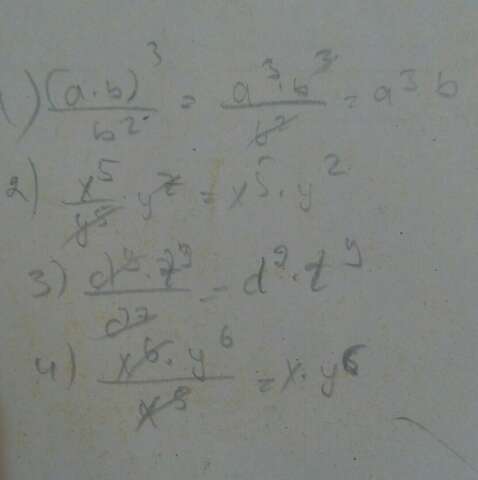 1) (a·b)³/b² = a³·b³/b² = a³b
2) x⁵/y⁵·y⁷ = x⁵·y²
3) d⁹·z⁹/d⁷ = d²·z⁹
4) x⁶·y⁶/x⁵ = x·y⁶